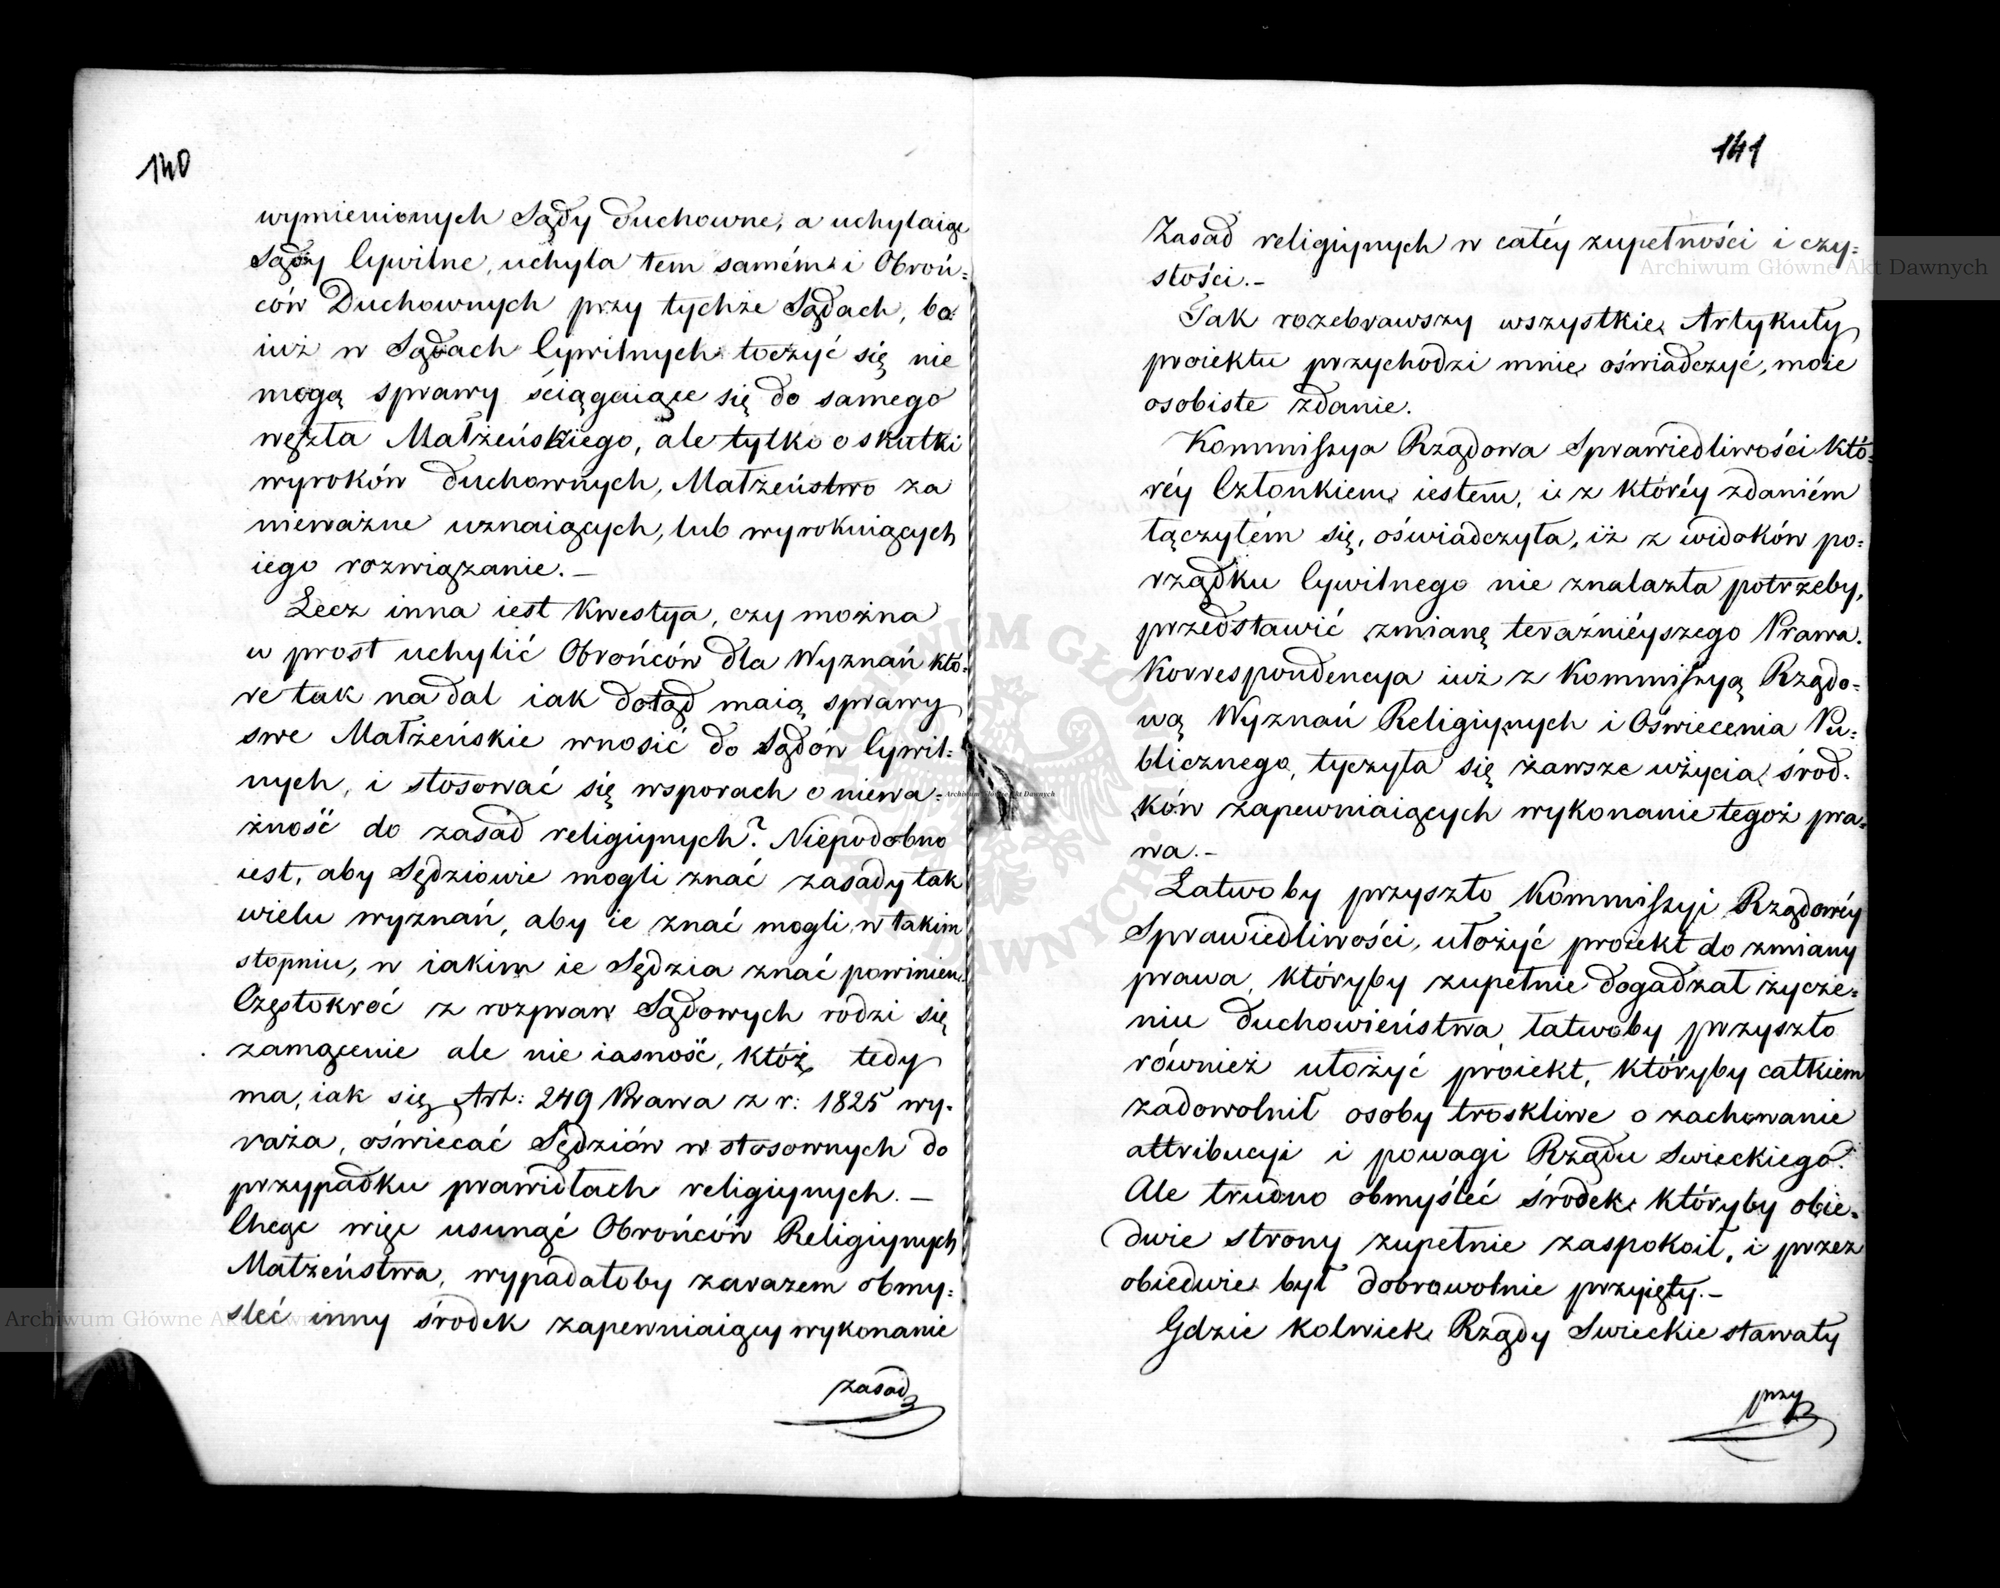 140
wymienionych Sądy duchowne, a uchylaiąc
Sądy Cywilne, uchyla tem samém i Obroń=
ców Duchownych przy tychże Sądach, bo
iuż w Sądach Cywilnych toczyć się nie
mogą sprawy ściągaiące się do samego
węzła Małżeńskiego, ale tylko o skutki
wyroków duchownych, Małżeństwo za
nieważne uznaiących, lub wyrokuiących
iego rozwiązanie. —
Lecz inna iest kwestya, czy można
w prost uchylić Obrońców dla Wyznań któ=
re tak nadal iak dotąd maią sprawy
swe Małżeńskie wnosić do Sądów Cywil=
nych, i stosować się wsporach o niewa=
żność do zasad religiynych? Niepodobno
iest, aby Sędziowie mogli znać zasady tak
wielu wyznań, aby ie znać mogli w takim
stopniu, w iakim ie Sędzia znać powinien.
Częstokroć z rozpraw Sądowych rodzi się
zamącenie ale nie iasność, któż tedy
ma, iak się Art: 249 Prawa z r: 1825 wy=
raża, oświecać Sędziów w stosownych do
przypadku prawidłach religiynych. —
Chcąc więc usunąć Obrońców Religiynych
Małżeństwa, wypadałoby zarazem obmy=
sleć inny środek zapewniaiący wykonanie
zasad
141
Zasad religiynych w całéy zupełności i czy=
stości. —
Tak rozebrawszy wszystkie Artykuły
proiektu przychodzi mnie oświadczyć, moie
osobiste zdanie.
Kommissya Rządowa Sprawiedliwości któ=
réy Członkiem iestem, i z któréy zdaniém
łączyłém się, oświadczyła, iż z widoków po=
rządku Cywilnego nie znalazła potrzeby,
przedstawić zmianę teraźniéyszego Prawa.
Korrespondencya iuż z Kommissyą Rządo=
wą Wyznań Religiynych i Oświecenia Pu=
blicznego, tyczyła się zawsze użycia środ=
ków zapewniaiących wykonanie tegoż pra=
wa. —
Łatwo by przyszło Kommissyi Rządowéy
Sprawiedliwości, ułożyć proiekt do zmiany
prawa, któryby zupełnie dogadzał życze=
niu duchowieństwa, łatwoby przyszło
również ułożyć proiekt, któryby całkiem
zadowolnił osoby troskliwe o zachowanie
attribucyi i powagi Rządu Swieckiego.
Ale trudno obmyśleć środek któryby obie=
dwie strony zupełnie zaspokoił, i przez
obiedwie był dobrowolnie przyięty. —
Gdzie kolwiek Rządy Swieckie stawały
przy
Archiwum Główne Akt Dawnych
Archiwum Główne Akt Dawnych
Archiwum Główne Akt Dawnych